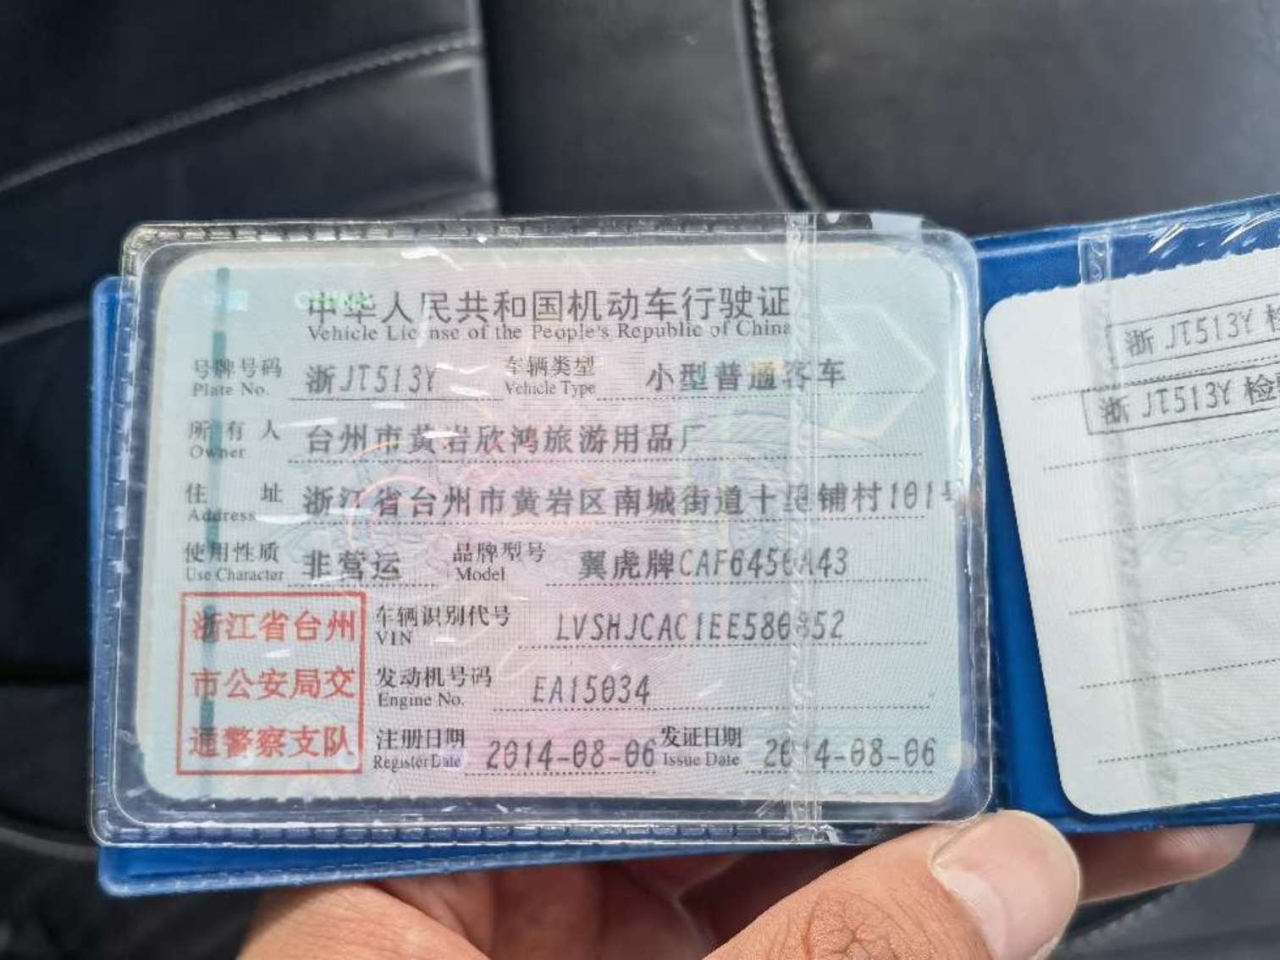 中华人民共和国机动车行驶证
Vehicle License of the People's Republic of China
号牌号码 浙JT513Y 车辆类型 小型普通客车
Plate No. Vehicle Type
所有人 台州市黄岩欣鸿旅游用品厂
Owner
住址 浙江省台州市黄岩区南城街道十里铺村101号
Address
使用性质 非营运 品牌型号 翼虎牌CAF6450A43
Use Character Model
车辆识别代号 LVSHJCAC1EE580852
VIN
发动机号码 EA15034
Engine No.
注册日期 2014-08-06 发证日期 2014-08-06
Register Date Issue Date
浙江省台州
市公安局交
通警察支队
浙JT513Y 检
浙JT513Y 检